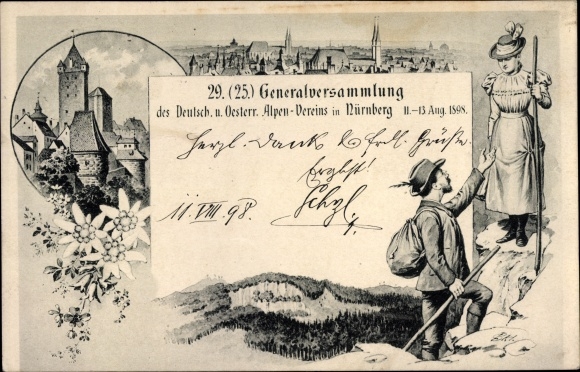 29. (25.) Generalversammlung
des Deutsch. u. Oesterr. Alpen-Vereins in Nürnberg 11.-13 Aug. 1898.
Herzl. Dank & frdl. Grüße
Ergbst!
11. VIII. 98.